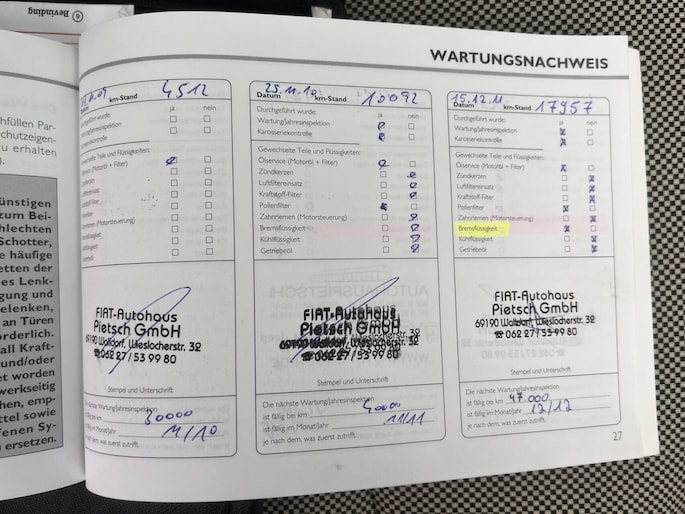 ⑥ Bevinding
hfüllen Par-
chutzeigen-
zu erhalten
).
ünstigen
zum Bei-
hlechten
Schotter,
e häufige
etten der
es Lenk-
gung und
elenken,
an Türen
orderlich.
all Kraft-
und/oder
et worden
werkseitig
hen, emp-
ttel sowie
ffenen Sy-
ersetzen.
WARTUNGSNACHWEIS
km-Stand 4512
ja nein
wurde:
inspektion
kontrolle
Teile und Flüssigkeiten:
(Motoröl + Filter)
einsatz
-Filter
(Motorsteuerung)
FIAT-Autohaus
Pietsch GmbH
69190 Walldorf, Wieslocherstr. 32
☎ 062 27 / 53 99 80
Stempel und Unterschrift
Die nächste Wartung/Jahresinspektion
ist fällig bei km 30000
ist fällig im Monat/Jahr 11/10
je nach dem, was zuerst zutrifft.
25.11.10 10092
Datum km-Stand
Durchgeführt wurde: ja nein
Wartung/Jahresinspektion
Karosseriekontrolle
Gewechselte Teile und Flüssigkeiten:
Ölservice (Motoröl + Filter)
Zündkerzen
Luftfiltereinsatz
Kraftstoff-Filter
Pollenfilter
Zahnriemen (Motorsteuerung)
Bremsflüssigkeit
Kühlflüssigkeit
Getriebeöl
FIAT-Autohaus
Pietsch GmbH
69190 Walldorf, Wieslocherstr. 32
☎ 062 27 / 53 99 80
Stempel und Unterschrift
Die nächste Wartung/Jahresinspektion
ist fällig bei km 40000
ist fällig im Monat/Jahr 11/11
je nach dem, was zuerst zutrifft.
15.12.11 17957
Datum km-Stand
Durchgeführt wurde: ja nein
Wartung/Jahresinspektion
Karosseriekontrolle
Gewechselte Teile und Flüssigkeiten:
Ölservice (Motoröl + Filter)
Zündkerzen
Luftfiltereinsatz
Kraftstoff-Filter
Pollenfilter
Zahnriemen (Motorsteuerung)
Bremsflüssigkeit
Kühlflüssigkeit
Getriebeöl
FIAT-Autohaus
Pietsch GmbH
69190 Walldorf, Wieslocherstr. 32
☎ 062 27 / 53 99 80
Stempel und Unterschrift
Die nächste Wartung/Jahresinspektion
ist fällig bei km 47000
ist fällig im Monat/Jahr 12/12
je nach dem, was zuerst zutrifft.
27